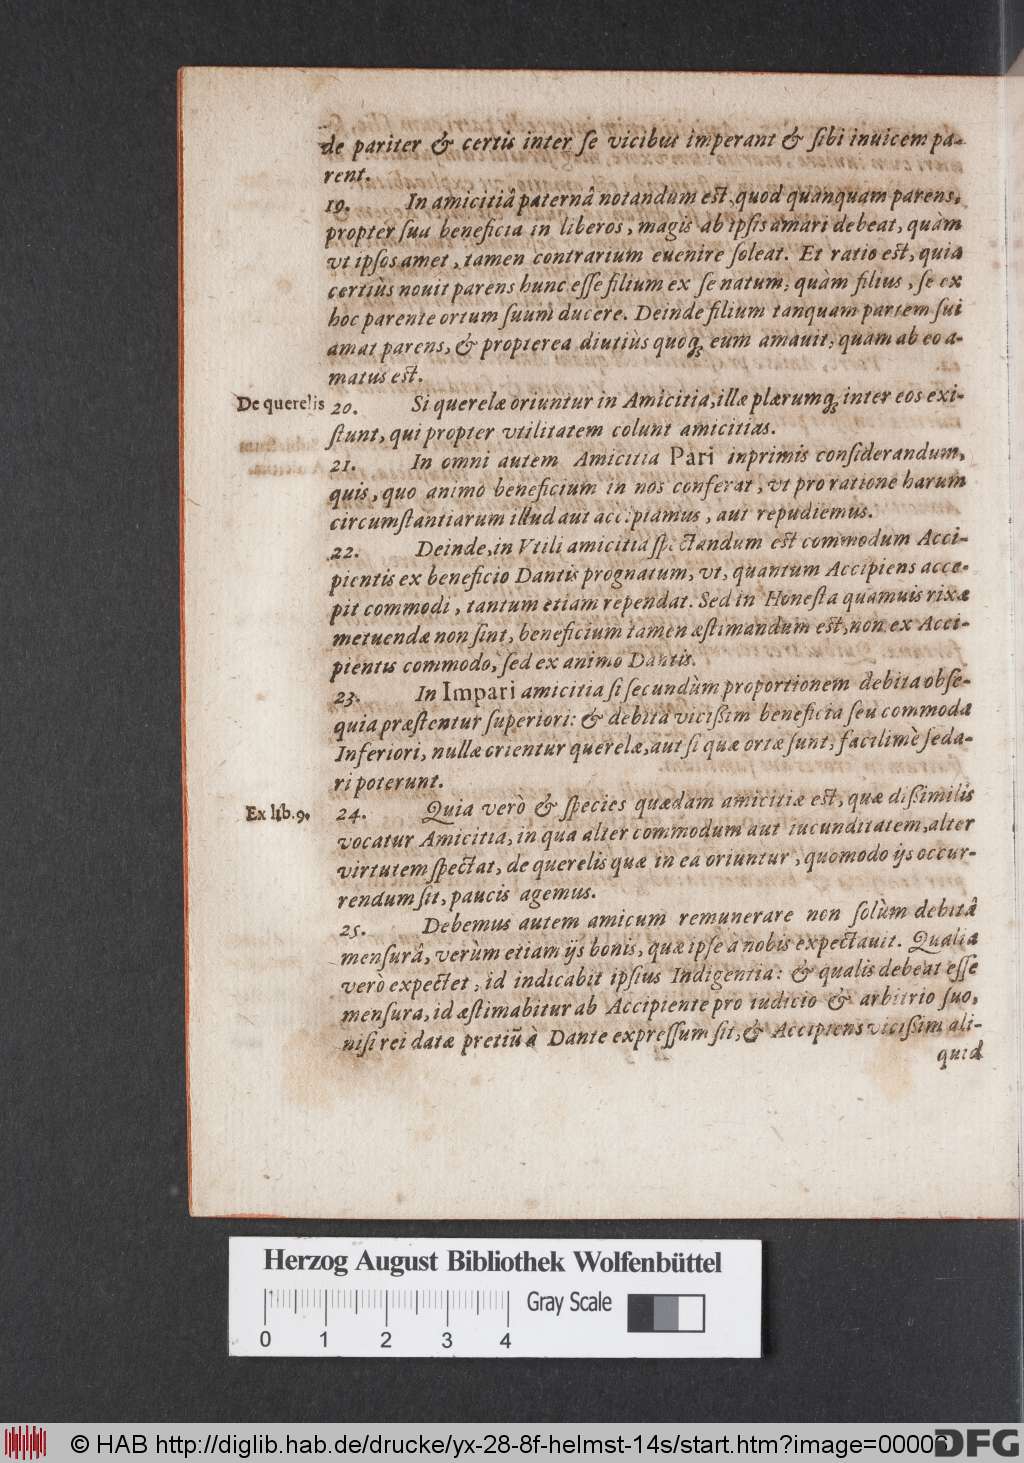 de pariter & certis inter ſe vicibus imperant & ſibi inuicem pa-
rent.
19. In amicitiâ paternâ notandum eſt, quod quanquam parens,
propter ſua beneficia in liberos, magis ab ipſis amari debeat, quàm
vt ipſos amet, tamen contrarium euenire ſoleat. Et ratio eſt, quia
certiùs nouit parens hunc eſſe filium ex ſe natum, quàm filius, ſe ex
hoc parente ortum ſuum ducere. Deinde filium tanquam partem ſui
amat parens, & propterea diutiùs quoq; eum amauit, quam ab eo a-
matus eſt.
De querelis
20. Si querelæ oriuntur in Amicitia, illæ plærumq; inter eos exi-
ſtunt, qui propter vtilitatem colunt amicitias.
21. In omni autem Amicitia Pari inprimis conſiderandum,
quis, quo animo beneficium in nos conferat, vt pro ratione harum
circumſtantiarum illud aut accipiamus, aut repudiemus.
22. Deinde, in Vtili amicitia ſpectandum eſt commodum Acci-
pientis ex beneficio Dantis prognatum, vt, quantum Accipiens acce-
pit commodi, tantum etiam rependat. Sed in Honeſta quamuis rixæ
metuendæ non ſint, beneficium tamen æſtimandum eſt, non ex Acci-
pientis commodo, ſed ex animo Dantis.
23. In Impari amicitia ſi ſecundùm proportionem debita obſe-
quia præſtentur ſuperiori: & debita viciſſim beneficia ſeu commoda
Inferiori, nullæ orientur querelæ, aut ſi quæ ortæ ſunt, facilimè ſeda-
ri poterunt.
Ex lib. 9.
24. Quia verò & ſpecies quædam amicitiæ eſt, quæ diſſimilis
vocatur Amicitia, in qua alter commodum aut iucunditatem, alter
virtutem ſpectat, de querelis quæ in ea oriuntur, quomodo ijs occur-
rendum ſit, paucis agemus.
25. Debemus autem amicum remunerare non ſolùm debitâ
menſurâ, verùm etiam ijs bonis, quæ ipſe a nobis expectauit. Qualia
verò expectet, id indicabit ipſius Indigentia: & qualis debeat eſſe
menſura, id æſtimabitur ab Accipiente pro iudicio & arbitrio ſuo,
niſi rei datæ pretiũ à Dante expreſſum ſit, & Accipiens viciſſim ali-
quid
Herzog August Bibliothek Wolfenbüttel
Gray Scale
0 1 2 3 4
© HAB http://diglib.hab.de/drucke/yx-28-8f-helmst-14s/start.htm?image=00006
DFG